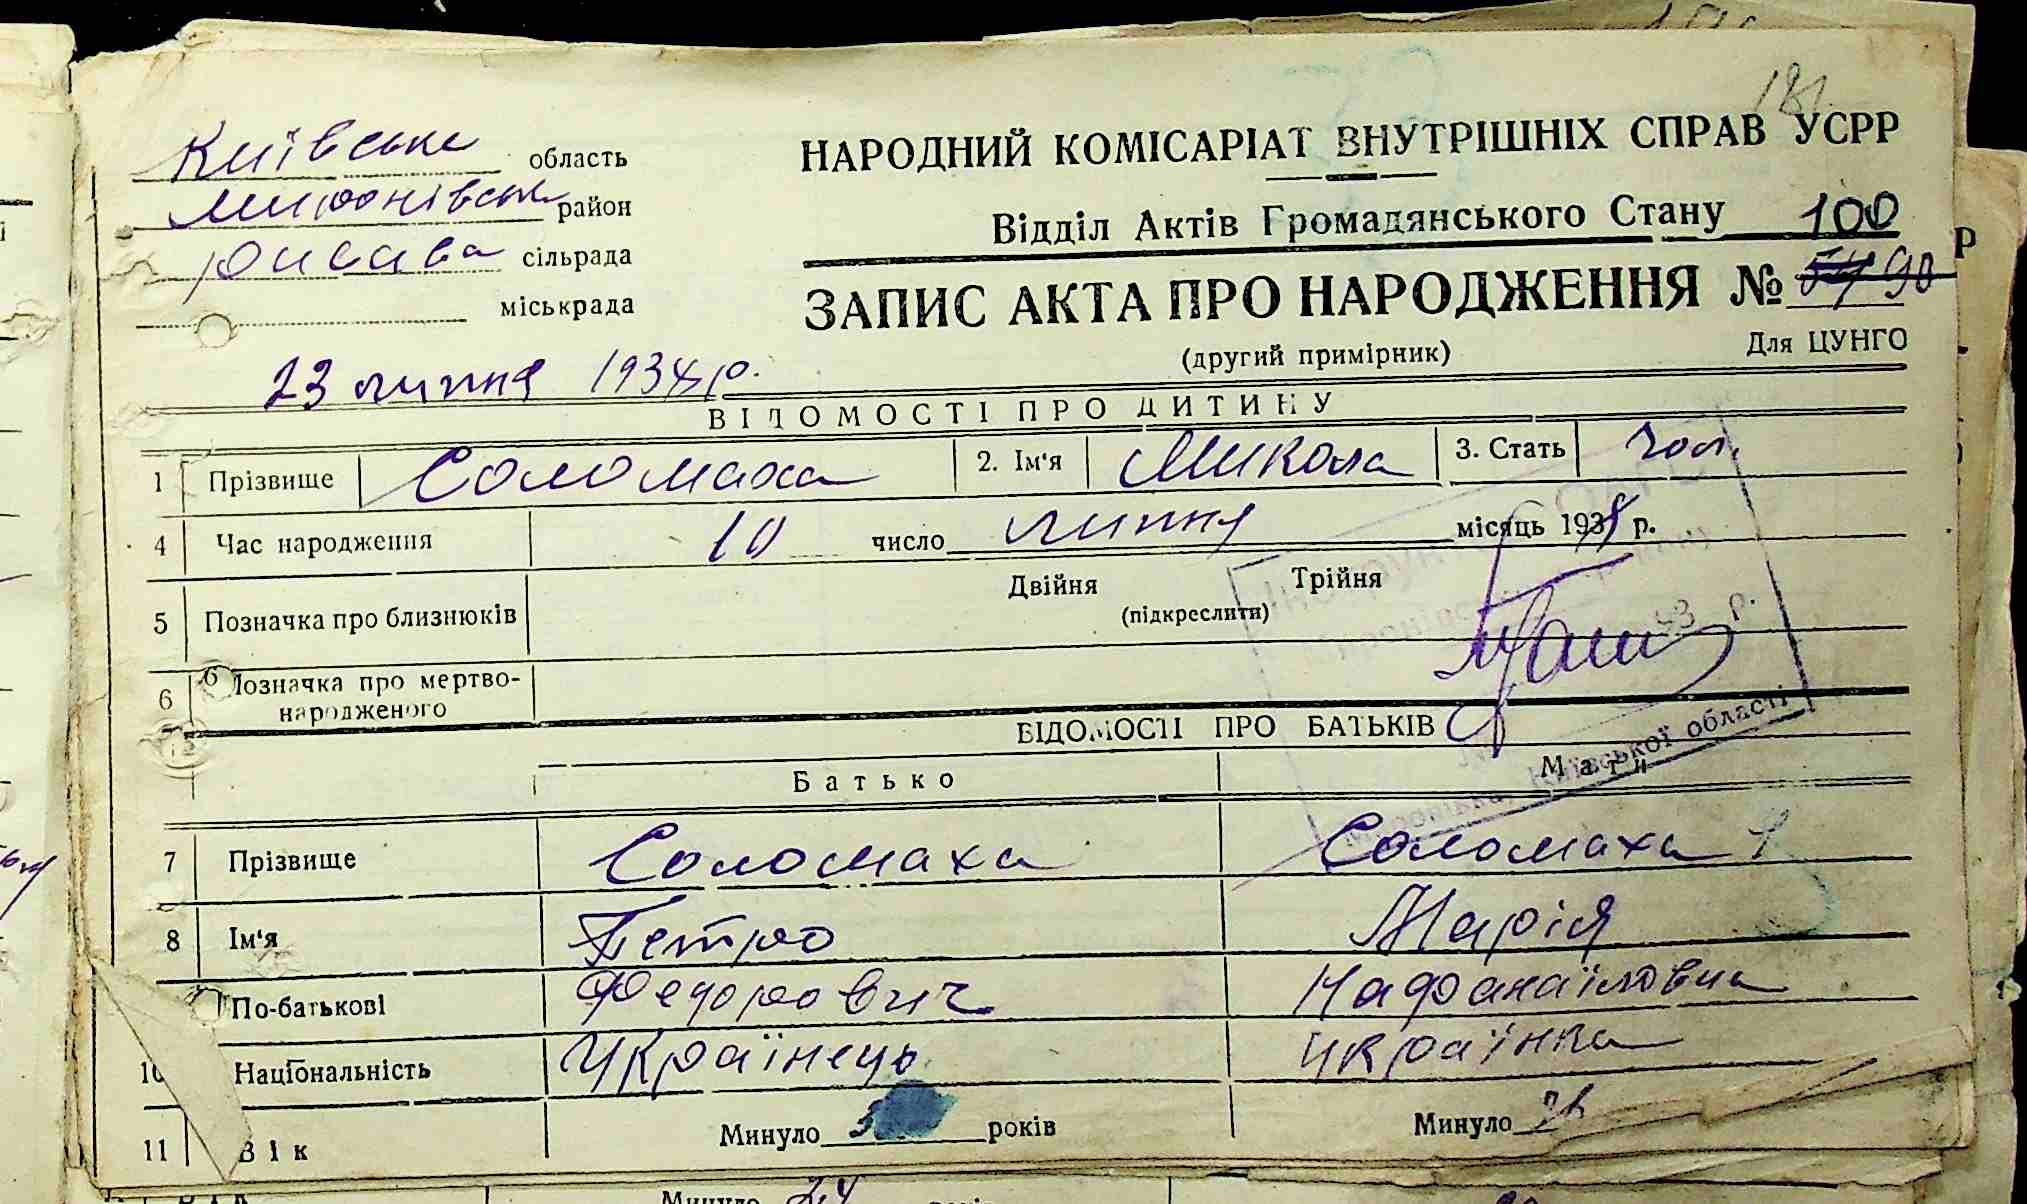 181
Київське область
НАРОДНИЙ КОМІСАРІАТ ВНУТРІШНІХ СПРАВ УСРР
Миронівськ район
Відділ Актів Громадянського Стану 100
Росава сільрада
ЗАПИС АКТА ПРО НАРОДЖЕННЯ № 54 90
міськрада
(другий примірник) Для ЦУНГО
23 липня 1934 р.
ВІДОМОСТІ ПРО ДИТИНУ
1 Прізвище Соломаха 2. Ім'я Микола 3. Стать чол.
4 Час народження 10 число липня місяць 1934 р.
5 Позначка про близнюків Двійня Трійня
(підкреслити)
6 Позначка про мертво-
народженого
193 р.
ВІДОМОСТІ ПРО БАТЬКІВ
Київської області
Батько Мати
7 Прізвище Соломаха Соломаха
8 Ім'я Петро Марія
По-батькові Федорович Нафанаїловна
10 Національність Українець Українка
11 Вік Минуло 3 років Минуло 26
Минуло 24